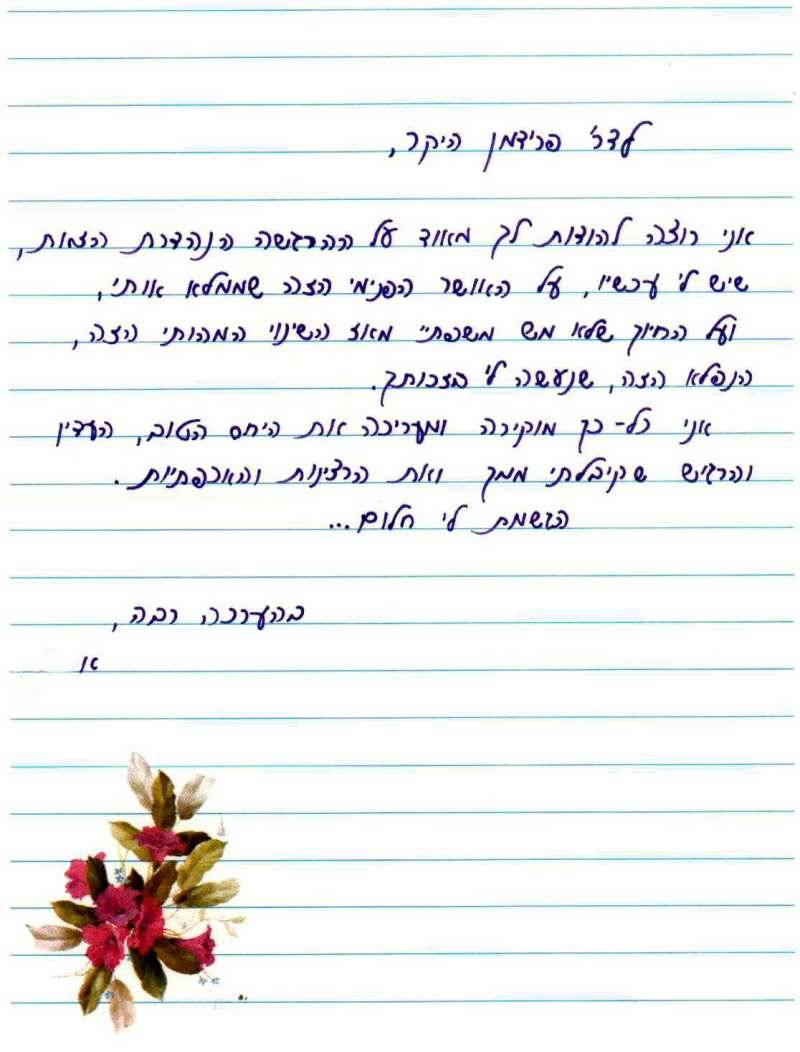 לדר' פרידמן היקר,
אני רוצה להודות לך מאוד על ההרגשה הנהדרת הזאת,
שיש לי עכשיו, על האושר הפנימי הזה שממלא אותי,
ועל החיוך שלא מש משפתיי מאז השינוי המהותי הזה,
הנפלא הזה, שנעשה לי בזכותך.
אני כל-כך מוקירה ומעריכה את היחס הטוב, העדין
והרגיש שקיבלתי ממך ואת הרצינות והאכפתיות.
הגשמת לי חלום...
בהערכה רבה,